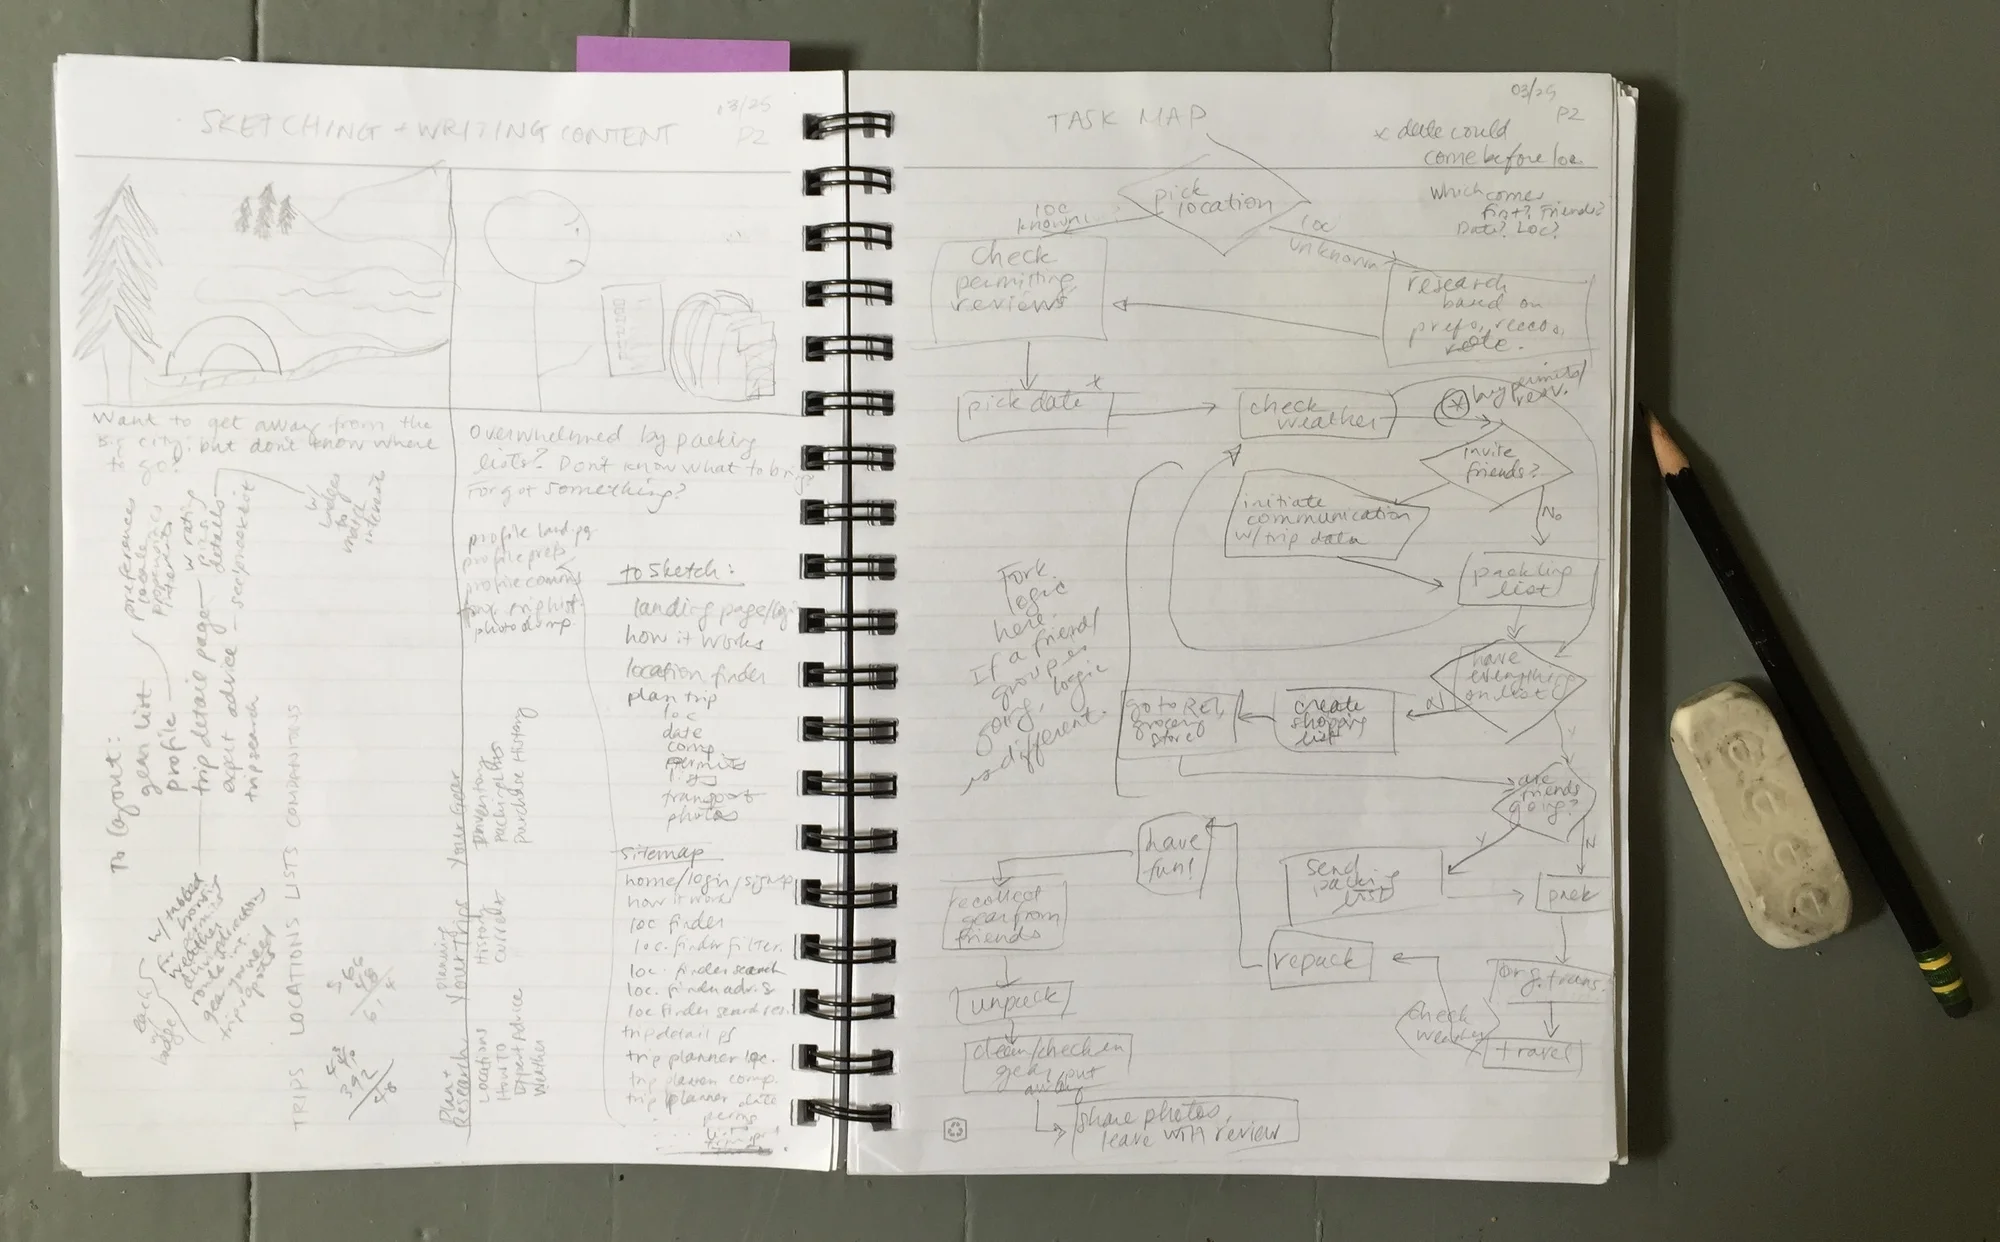 SKETCHING + WRITING CONTENT
03/25
P2
Want to get away from the
Big city? but don't know where
to go?
Overwhelmed by packing
lists? Don't know what to bring?
Forgot something?
w/
badges
to
match
interests
profile land pg
profile prefs
profile comms
photo dump
to sketch:
landing page/log
how it works
location finder
plan trip
loc
date
comp
permits
lists
transport
photos
sitemap
home/login/signup
how it works
loc finder
loc. finder filter.
loc. finder search
loc. finder adv. s
loc finder search res.
trip detail pg
trip planner loc.
trip planner comp.
trip planner date
perms
To layout:
gear list
profile
trip detail page
expert advice
trip search
preferences
locale
w rating
pricing
details
see/precheck list
TRIPS LOCATIONS LISTS COMPANIONS
each
badge
Plan +
Research
Locations
How to
Expert Advice
Weather
Your trips
planning
History
Current
Your Gear
Inventory
Packing lists
Purchase History
TASK MAP
03/25
P2
* date could
come before loc
which comes
first? Friends?
Date? Loc?
pick
location
loc
known
loc
unknown
check
permitting,
reviews
research
based on
prefs, reccos,
vote.
pick date *
check
weather
* buy permits/
resv.
invite
friends?
No
initiate
communication
w/trip data
packing
list
Fork
logic
here.
If a friend/
group is
going, logic
is different.
have
everything
on list?
N
Y
create
shopping
list
go to REI,
grocery
store
are
friends
going?
Y
N
send
packing
list
pack
have
fun!
recollect
gear from
friends
repack
org. trans.
check
weather
travel
unpack
clean/check in
gear, put
away
share photos,
leave with review